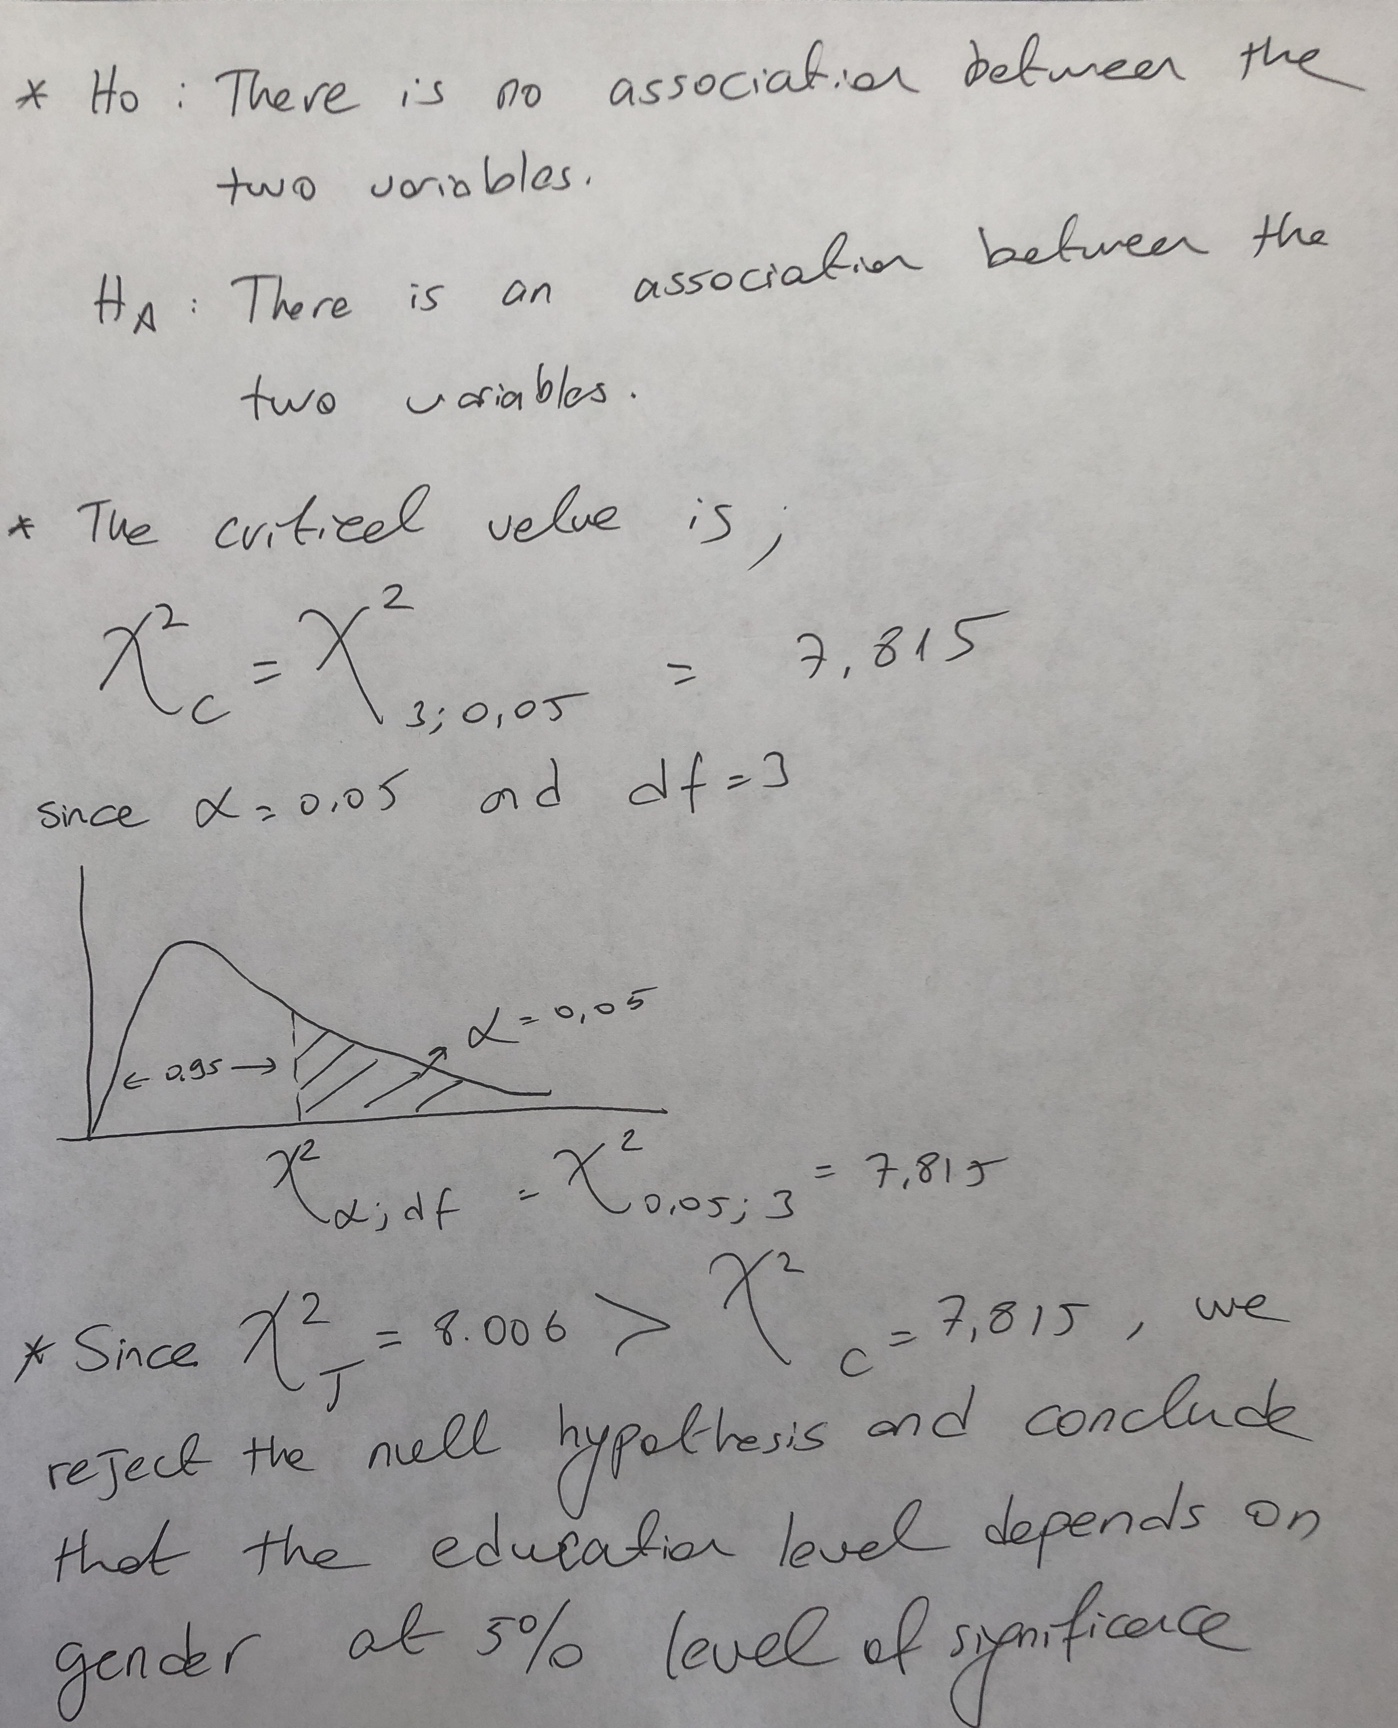 * Ho : There is no association between the
two variables.
HA : There is an association between the
two variables.
* The critical value is;
χ²c = χ²3;0,05 = 7,815
since α=0.05 and df=3
α=0,05
← 0.95 →
χ²α;df = χ²0,05;3 = 7,815
* Since χ²T = 8.006 > χ²c = 7,815, we
reject the null hypothesis and conclude
that the education level depends on
gender at 5% level of significance